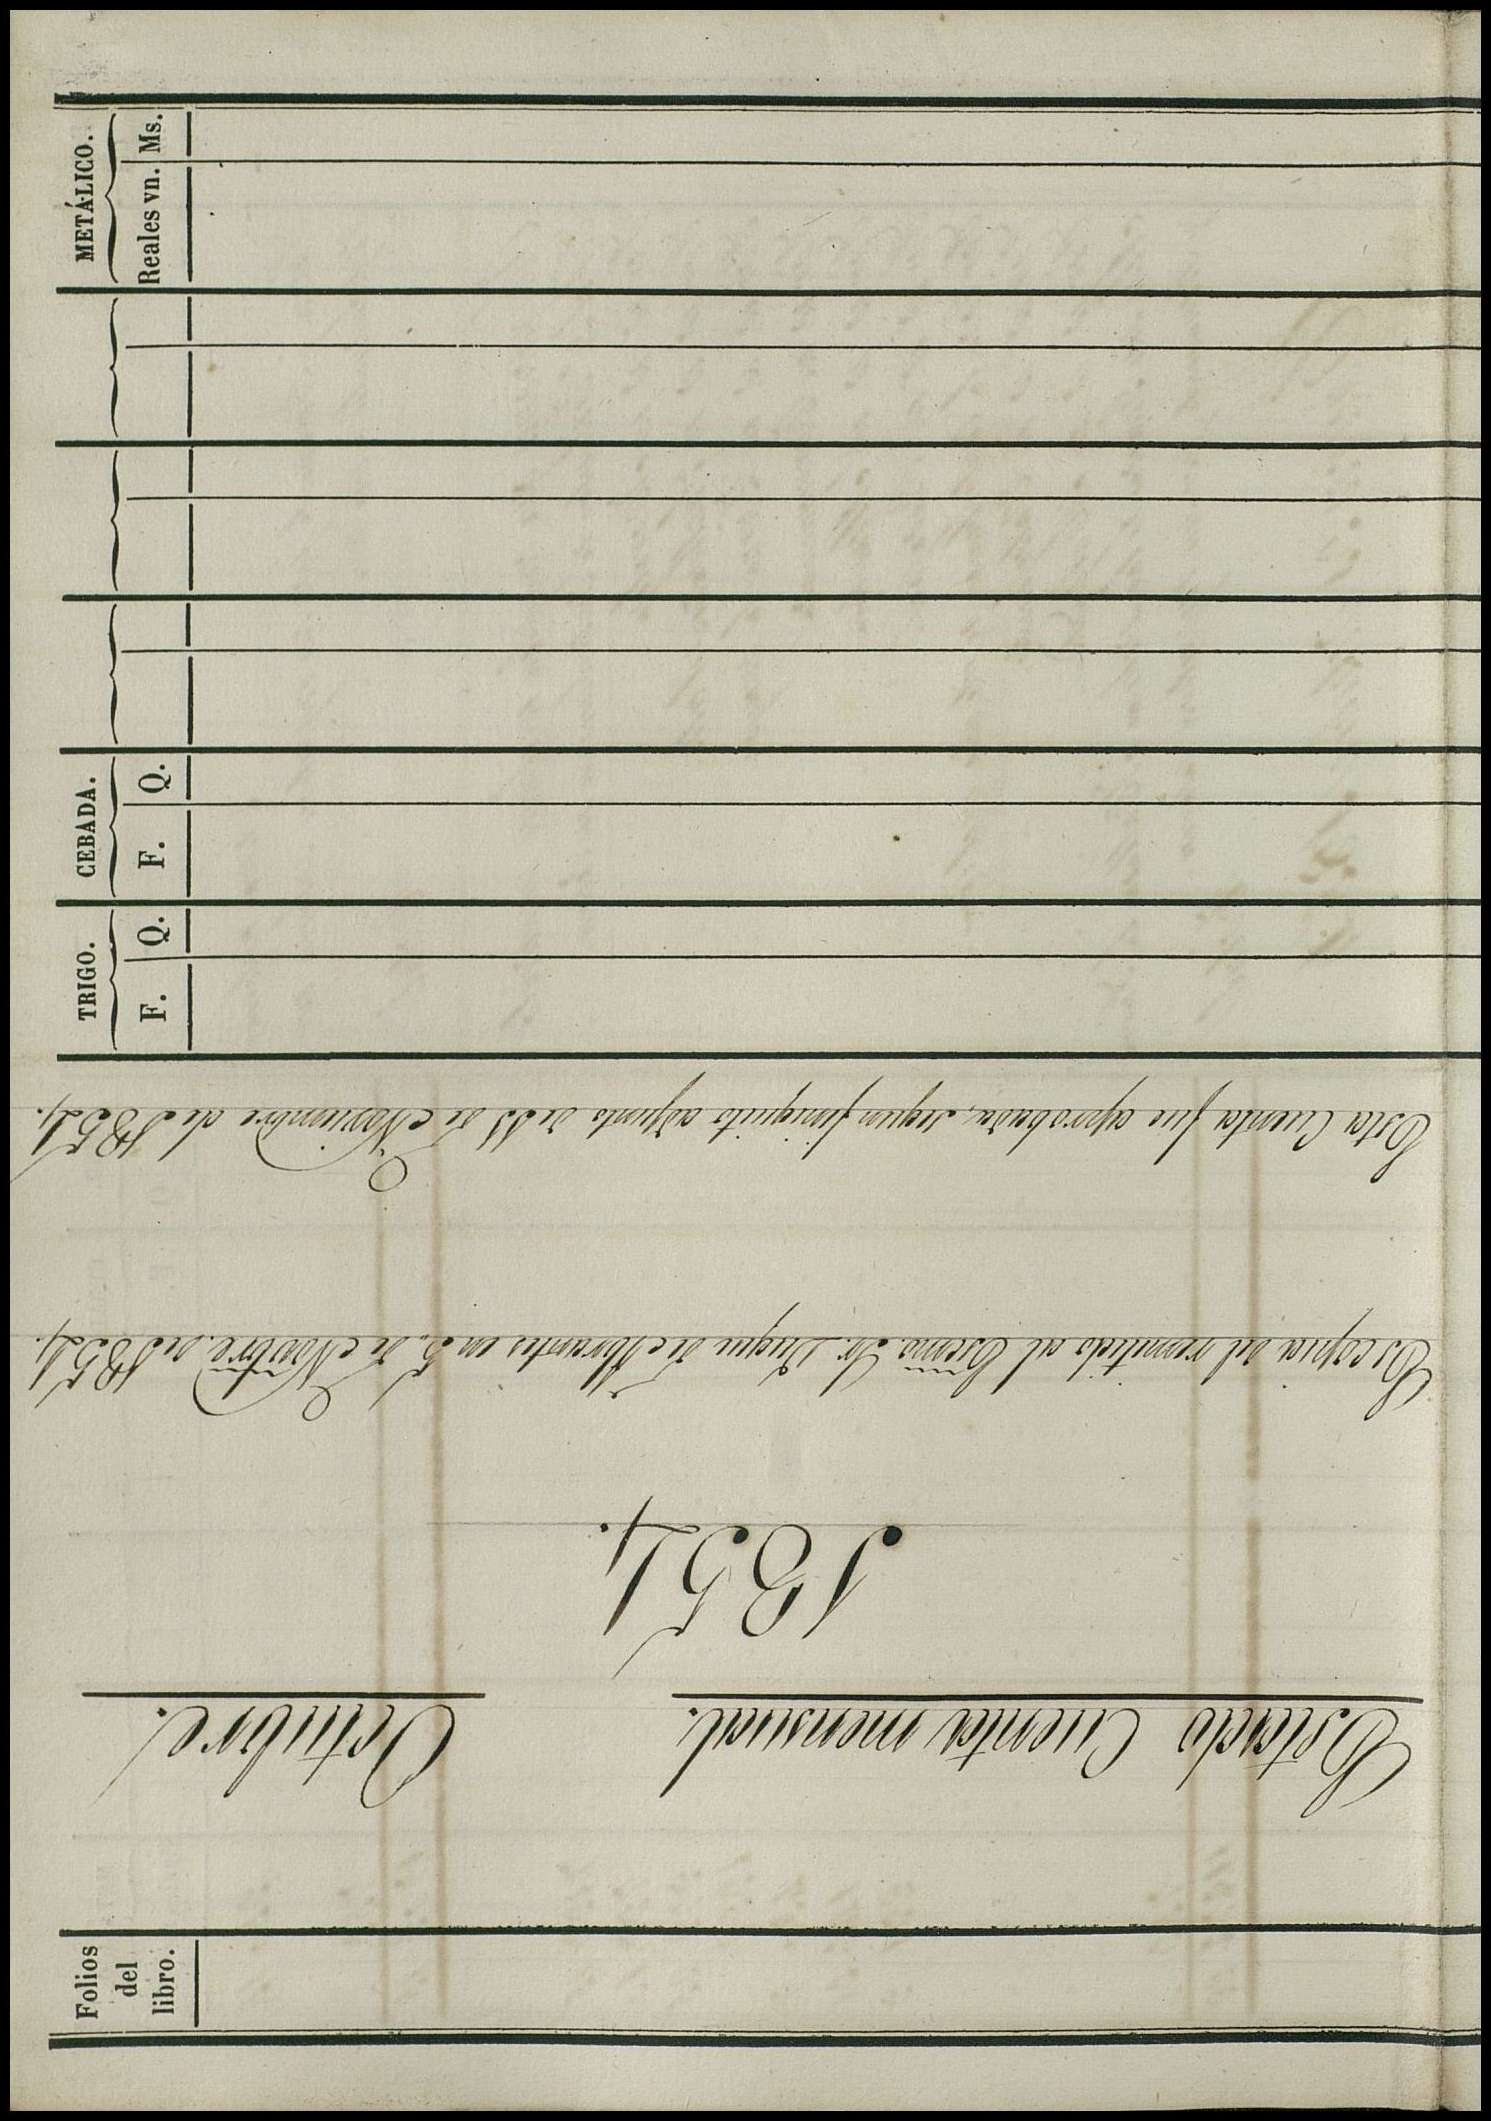 Estado Cuenta mensual. Octubre.
1854.
Es copia del remitido al Excmo. Sr. Duque de Abrantes en 5, de Novbre. de 1854.
Esta Cuenta fue aprobada, segun finiquito adjunto de 11 de Noviembre de 1854.
Folios
del
libro.
TRIGO.
F. Q.
CEBADA.
F. Q.
METÁLICO.
Reales vn. Ms.